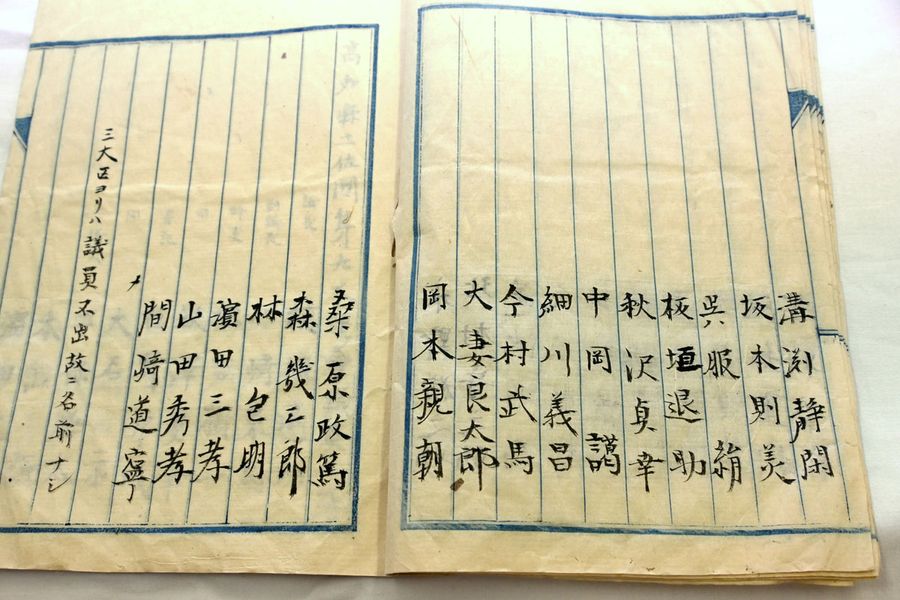 溝渕静閑
坂本則美
呉服絹
板垣退助
秋沢貞幸
中岡謁
細川義昌
今村武馬
大妻良太郎
岡本親朝
桑原政篤
森幾三郎
林包明
濵田三孝
山田秀孝
間﨑道寧
三大区ヨリハ議員不出故ニ名前ナシ